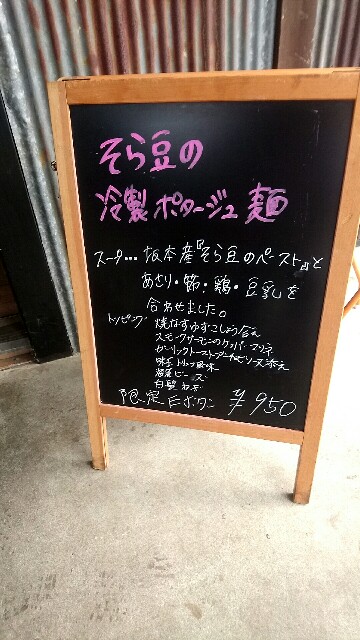 そら豆の
冷製ポタージュ麺
スープ… 坂本産『そら豆のペースト』と
あさり・節・鶏・豆乳を
合わせました。
トッピング 焼なすゆずこしょう合え
スモークサーモンのクリームマリネ
ガーリックトースト ソース添え
味玉 トリュフ風味
白髪ねぎ
限定Eボタン ¥950